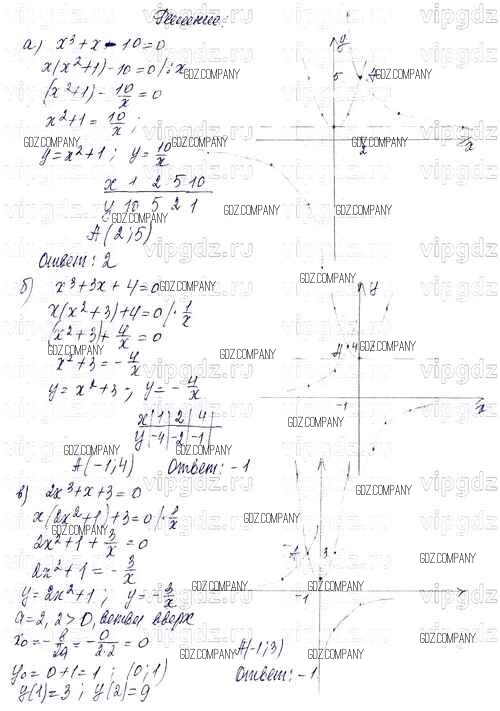 Решение:
а) x³ + x - 10 = 0
x(x²+1) - 10 = 0 /: x
(x²+1) - 10/x = 0
x²+1 = 10/x ;
y = x²+1 ; y = 10/x
x 1 2 5 10
y 10 5 2 1
A(2;5)
Ответ: 2
б) x³ + 3x + 4 = 0
x(x²+3) + 4 = 0 /· 1/x
(x²+3) + 4/x = 0
x²+3 = - 4/x
y = x²+3 ; y = - 4/x
x | 1 | 2 | 4 |
y | -4 | -2 | -1 |
A(-1;4) Ответ: -1
в) 2x³ + x + 3 = 0
x(2x²+1) + 3 = 0 /· 1/x
2x²+1 + 3/x = 0
2x²+1 = - 3/x
y = 2x²+1 ; y = - 3/x
a = 2, 2 > 0, ветви вверх
x₀ = - b/2a = - 0/2·2 = 0
y₀ = 0+1 = 1 ; (0;1)
y(1) = 3 ; y(2) = 9
A(-1;3)
Ответ: -1
y
5 A
2 x
y
A 4
-1 x
A 3
-1
GDZ.COMPANY
vipgdz.ru